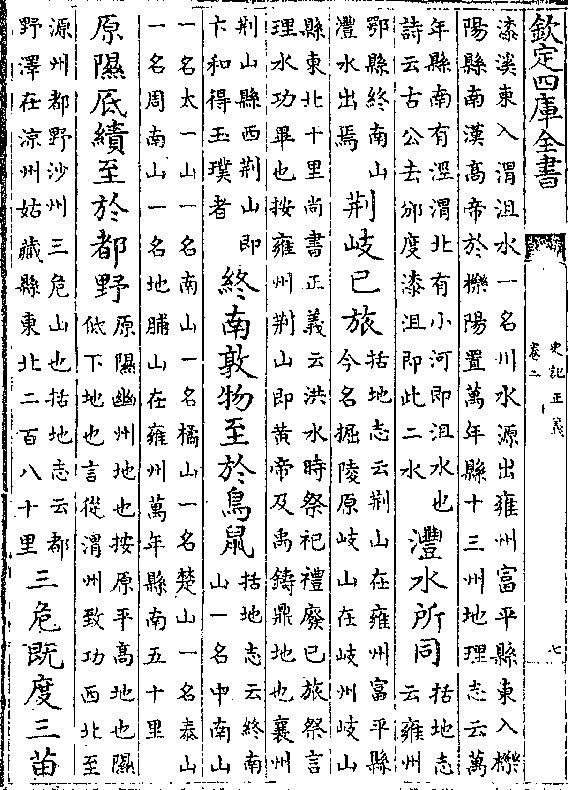 欽定四庫全書
史記正義
卷二
七
漆溪東入渭沮水一名川水源出雍州富平縣東入櫟
陽縣南漢高帝於櫟陽置萬年縣十三州地理志云萬
年縣南有涇渭北有小河即沮水也
詩云古公去邠度漆沮即此二水
灃水所同
括地志
云雍州
鄠縣終南山
灃水出焉
荆岐已旅
括地志云荆山在雍州富平縣
今名掘陵原岐山在岐州岐山
縣東北十里尚書正義云洪水時祭祀禮廢已旅祭言
理水功畢也按雍州荆山即黄帝及禹鑄鼎地也襄州
荆山縣西荆山即
卞和得玉璞者
終南敦物至於鳥鼠
括地志云終南
山一名中南山
一名太一山一名南山一名橘山一名楚山一名泰山
一名周南山一名地脯山在雍州萬年縣南五十里
原隰底績至於都野
原隰幽州地也按原平髙地也隰
低下地也言從渭州致功西北至
源州都野沙州三危山也括地志云都
野澤在凉州姑藏縣東北二百八十里
三危既度三苗